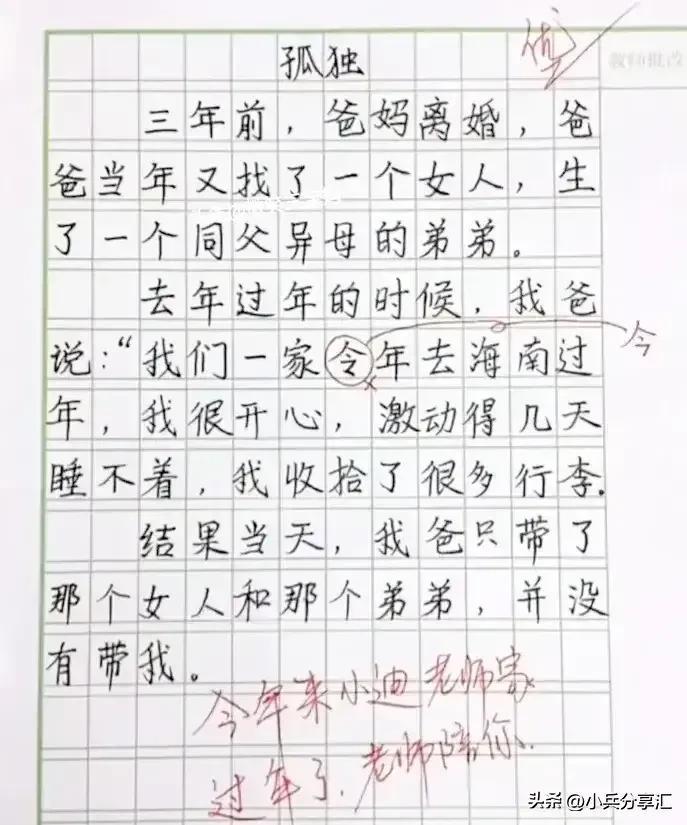 孤独
优
教师批改
三年前，爸妈离婚，爸
爸当年又找了一个女人，生
了一个同父异母的弟弟。
去年过年的时候，我爸
说：“我们一家令年去海南过
今
年，我很开心，激动得几天
睡不着，我收拾了很多行李.
结果当天，我爸只带了
那个女人和那个弟弟，并没
有带我。
今年来小迪老师家
过年了，老师陪你.
头条 @小兵分享汇